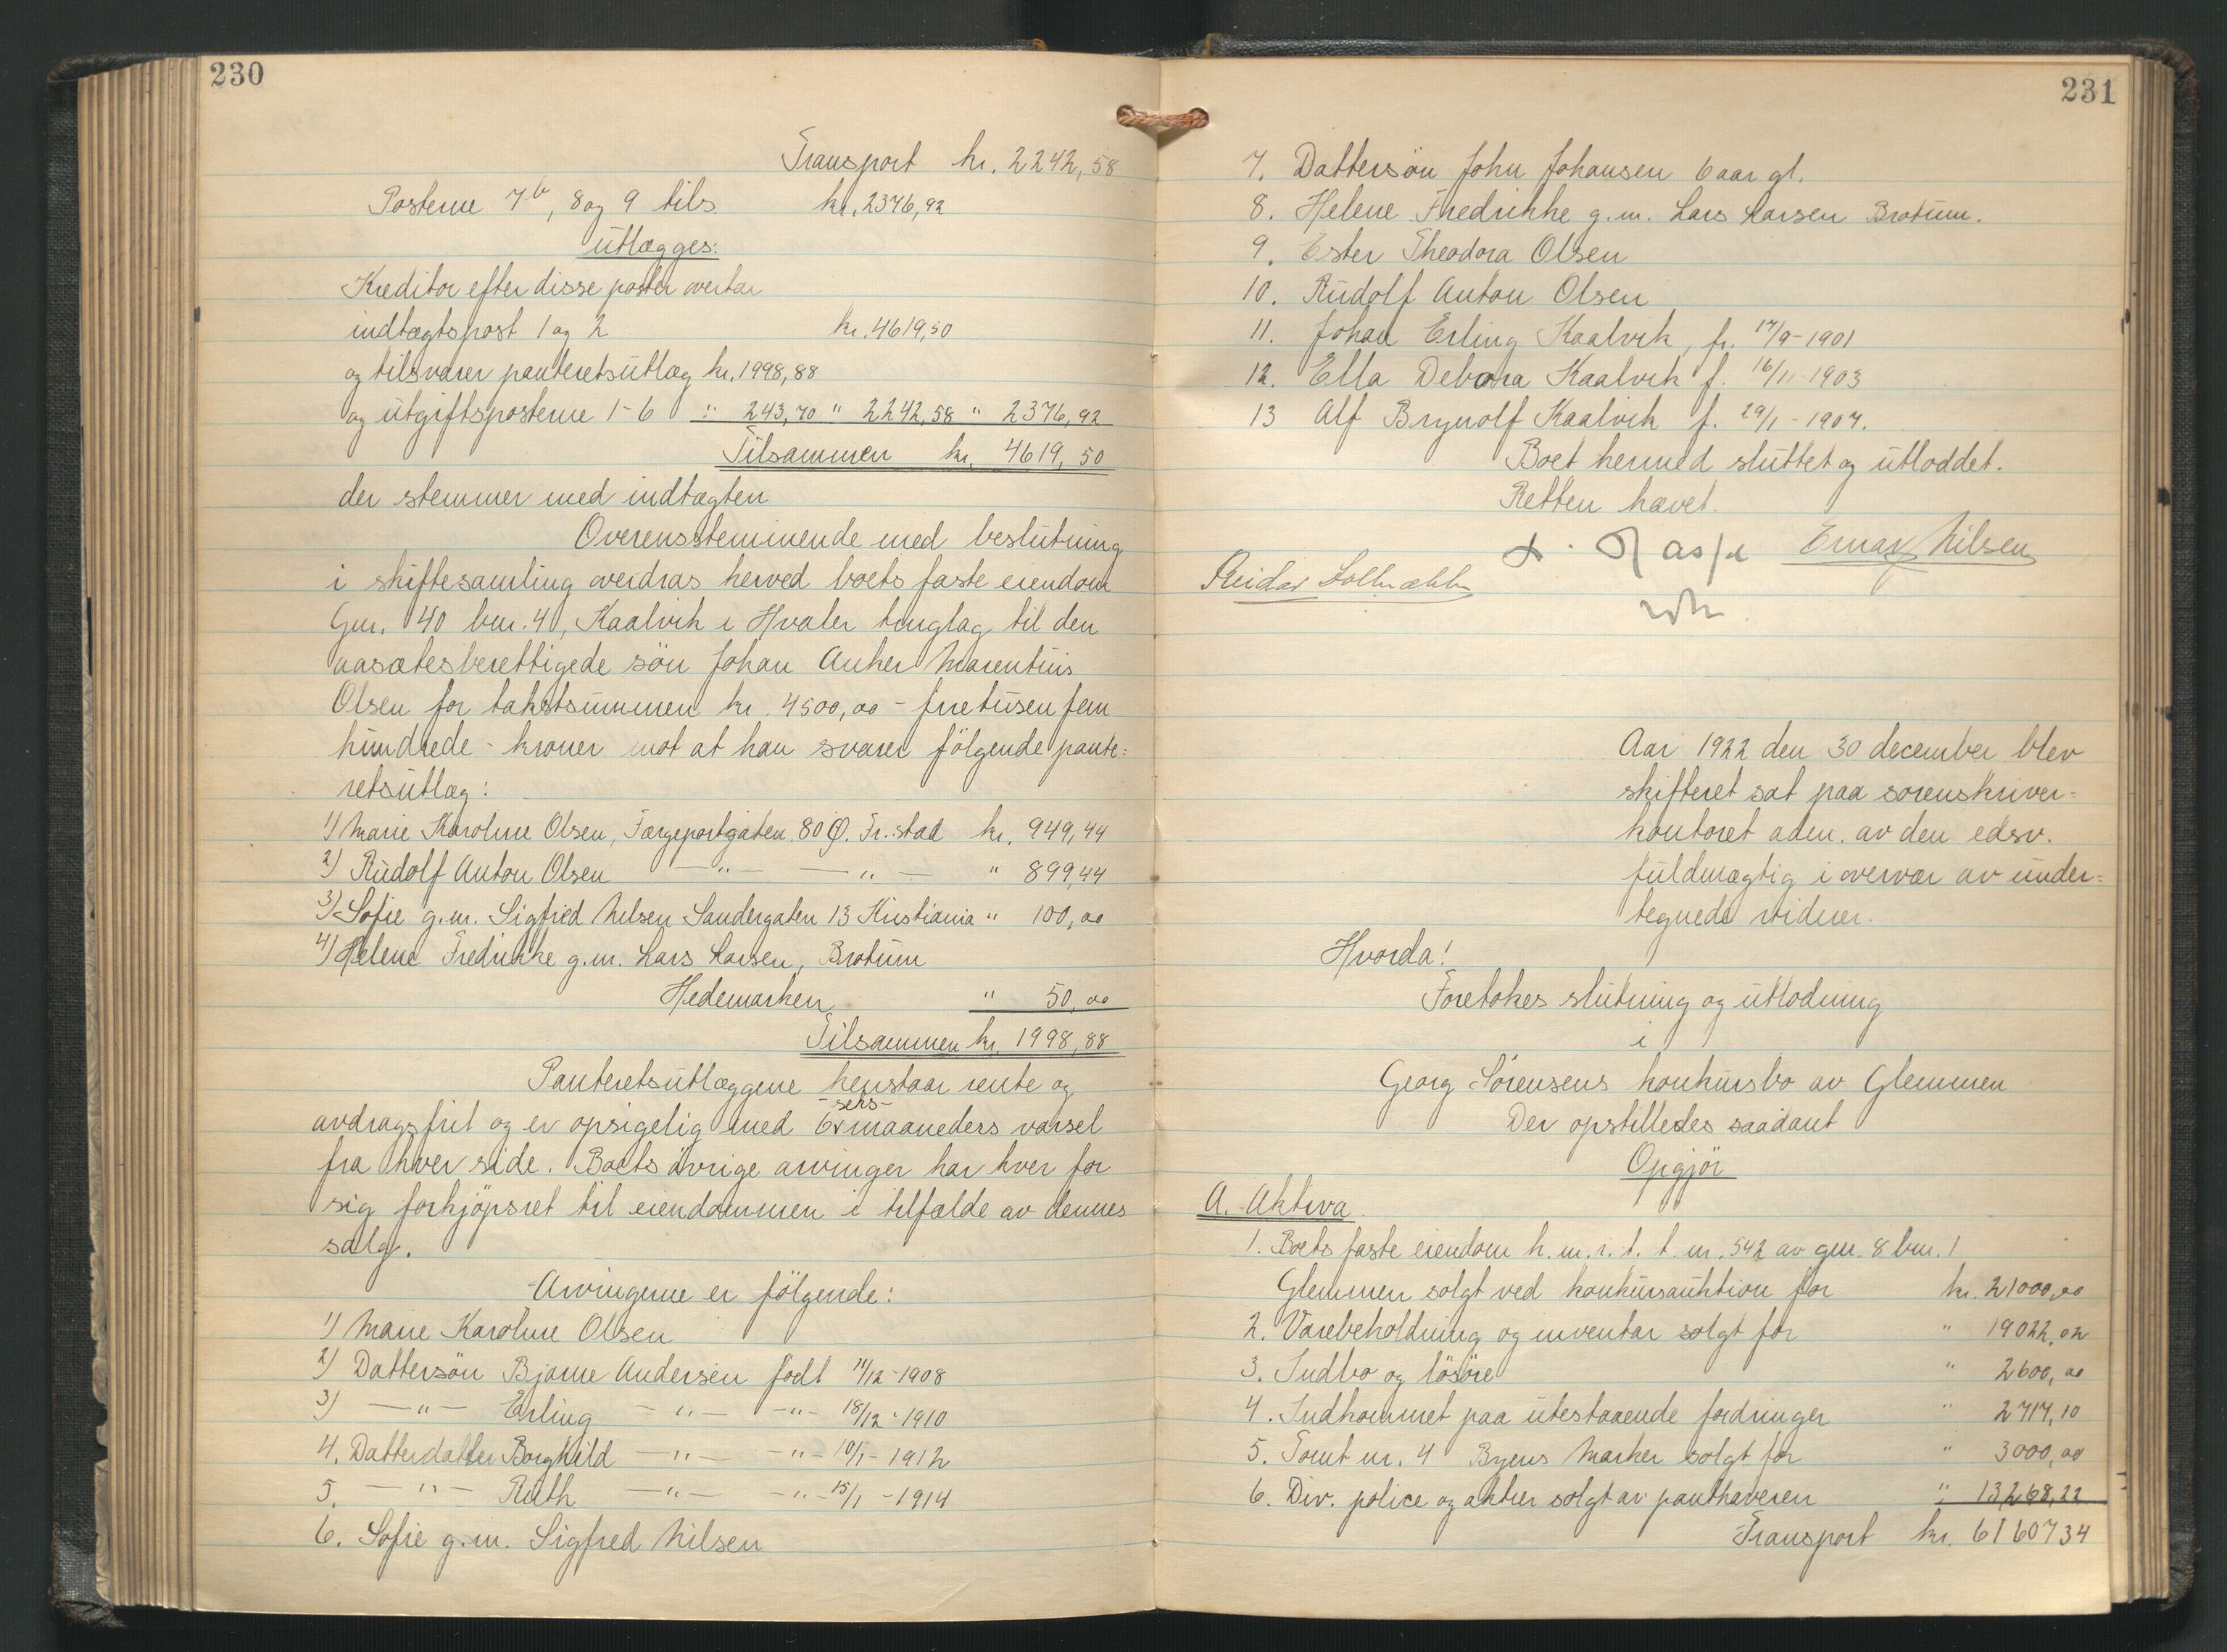 230
Transport kr. 2242,58
Posterne 7b, 8 og 9 tils. kr. 2376,92
utlægges:
Kreditor efter disse poster overtar
indtægtspost 1 og 2 kr. 4619,50
og tilsvarer panteretsutlæg kr. 1998,88
og utgiftsposterne 1-6 " 243,70 " 2242,58 " 2376,92
Tilsammen kr. 4619,50
der stemmer med indtægten
Overensstemmende med beslutning
i skiftesamling overdras herved boets faste eiendom
Gnr. 40 bnr. 4, Kaalvik i Hvaler tinglag til den
aasætesberettigede søn Johan Anker Marentius
Olsen for takstsummen kr. 4500,00 - firetusen fem
hundrede - kroner mot at han svarer følgende pante=
retsutlæg:
1) Marie Karoline Olsen, Færgeportgaten 80 Ø. Fr.stad kr. 949,44
2) Rudolf Anton Olsen —"— —"— " 899,44
3) Sofie g.m. Sigfred Nilsen Sandergaten 13 Kristiania " 100,00
4) Helene Fredrikke g.m. Lars Larsen, Brotum
Hedemarken " 50,00
Tilsammen kr. 1998,88
Panteretsutlæggene henstaar rente og
-seks-
avdragsfrit og er opsigelig med 6 v maaneders varsel
fra hver side. Boets øvrige arvinger har hver for
sig forkjøpsret til eiendommen i tilfælde av dennes
salg.
Arvingerne er følgende:
1) Marie Karoline Olsen
2) Dattersøn Bjarne Andersen født 11/12-1908
3) —"— Erling —"— —"— 18/12-1910
4. Datterdatter Borghild —"— —"— 10/1-1912
5. —"— Ruth —"— —"— 15/1-1914
6. Sofie g.m. Sigfred Nilsen
231
7. Dattersøn John Johansen 6 aar gl.
8. Helene Fredrikke g.m. Lars Larsen Brotum.
9. Ester Theodora Olsen
10. Rudolf Anton Olsen
11. Johan Erling Kaalvik, f. 17/9-1901
12. Ella Debora Kaalvik f. 16/11-1903
13 Alf Brynolf Kaalvik f. 29/1-1907.
Boet hermed sluttet og utloddet.
Retten hævet.
Einar Nilsen
Reidar
Aar 1922 den 30 december blev
skifteret sat paa sorenskriver=
kontoret adm. av den edsv.
fuldmægtig i overvær av under=
tegnede vidner.
Hvorda!
Foretokes slutning og utlodning
i
Georg Sørensens konkursbo av Glemmen
Der opstilledes saadant
Opgjør
A. Aktiva.
1. Boets faste eiendom h.m.r.t. t.nr. 542 av gnr. 8 bnr. 1
Glemmen solgt ved konkursauktion for kr. 21000,00
2. Varebeholdning og inventar solgt for " 19022,02
3. Indbo og løsøre " 2600,00
4. Indkommet paa utestaaende fordringer " 2717,10
5. Tomt nr. 4 Byens Marker solgt for " 3000,00
6. Div. police og aktier solgt av panthaveren " 13268,22
Transport kr. 61607 34